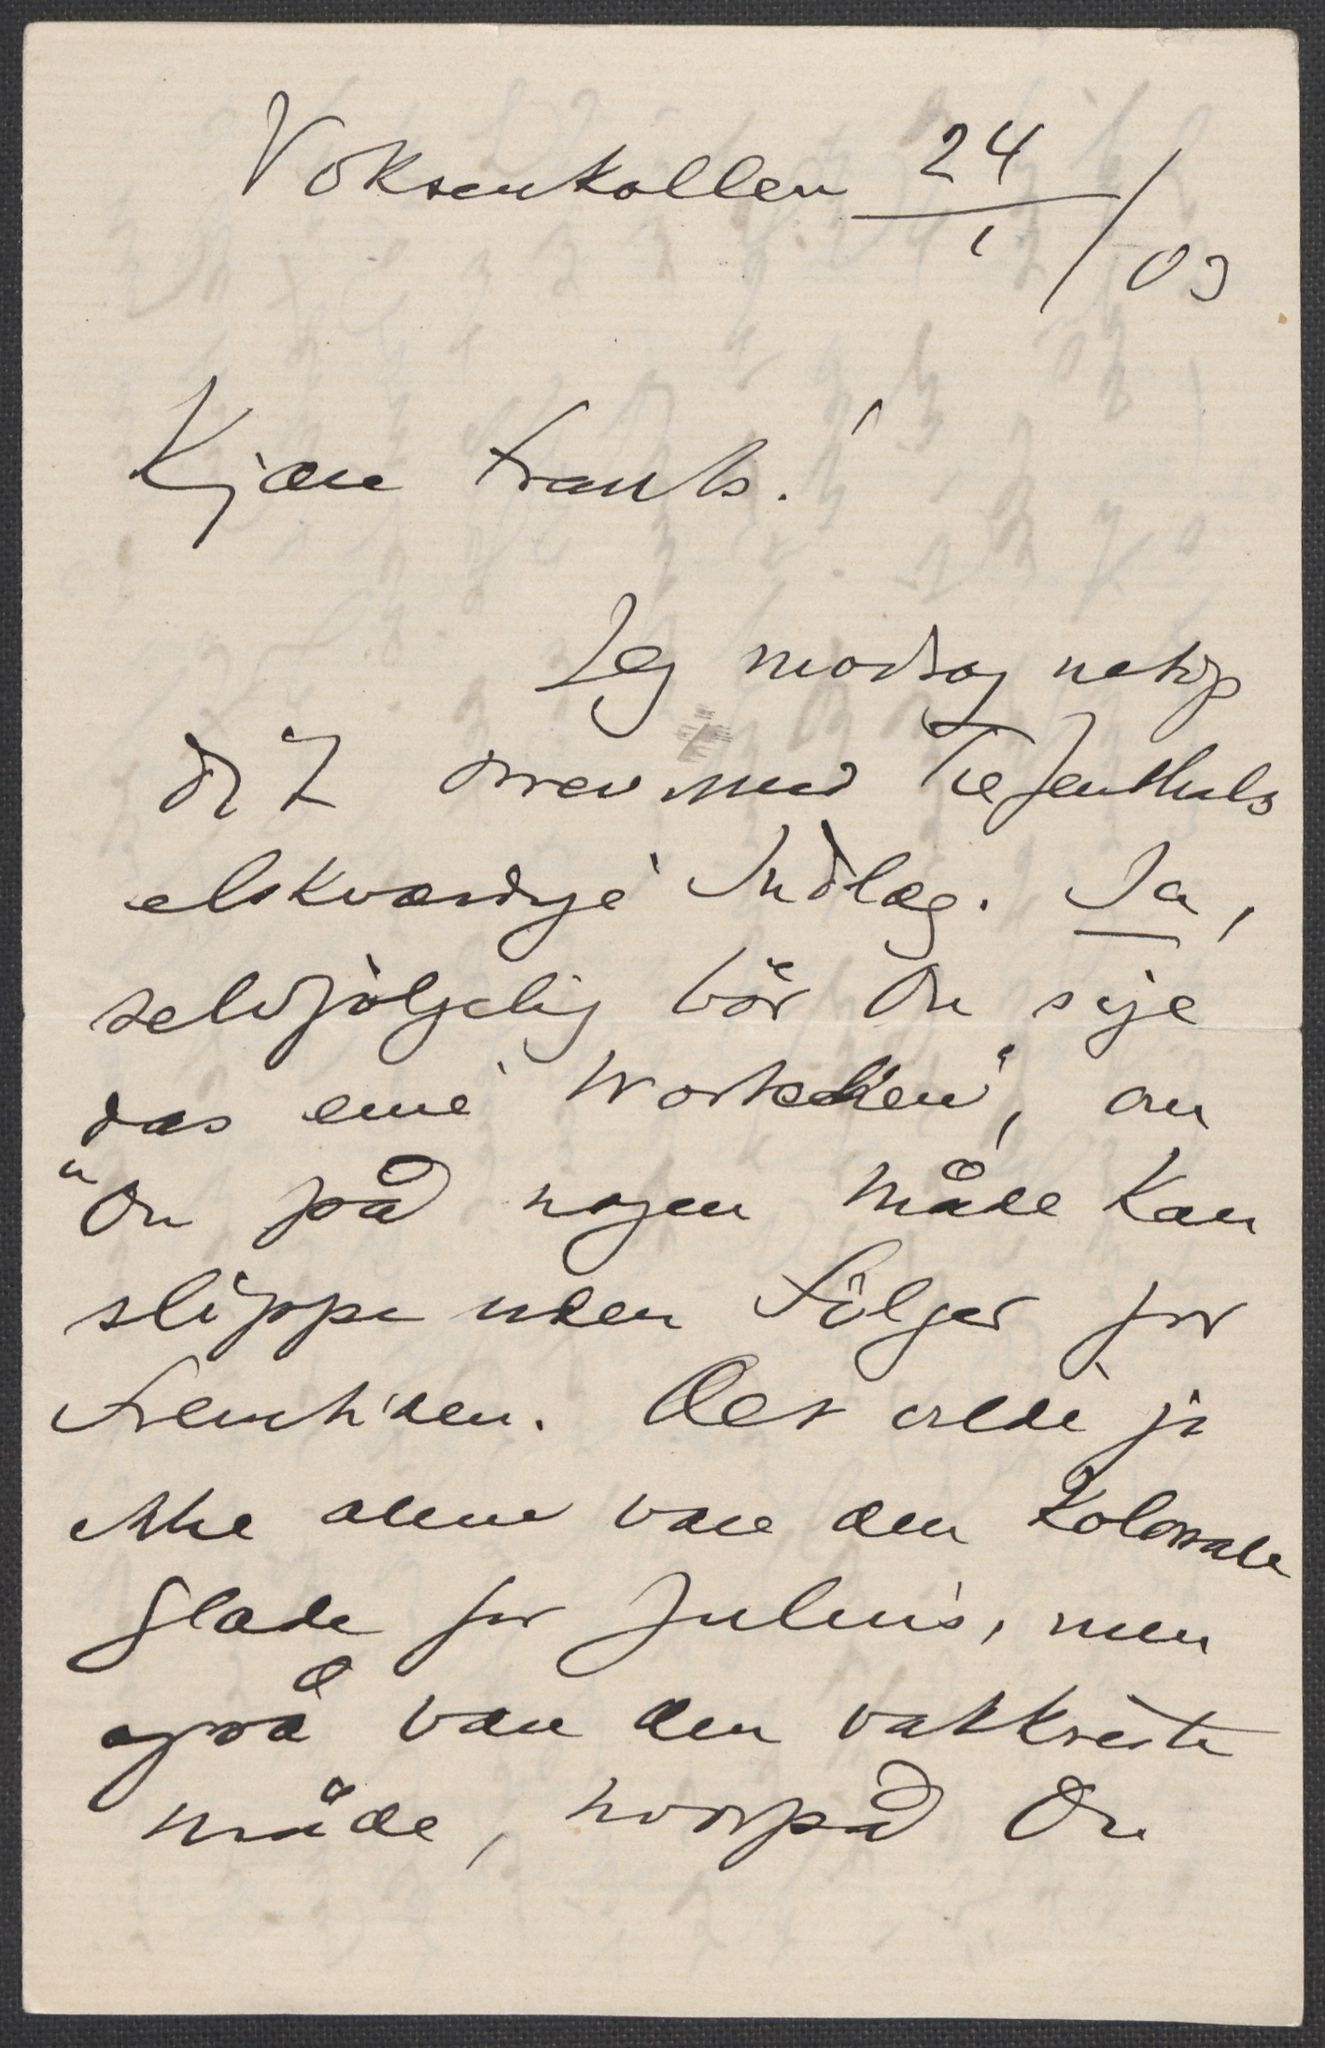 Voksenkollen 24/1/03
Kjære Frants!
Jeg modtog netop
dit Brev med Tiefenthals
elskværdige Indlæg. Ja,
selvfølgelig bör Du sige
"das eine Wörtchen", om
Du på nogen måde kan
slippe uden Følger for
Fremtiden. Det vilde jo
ikke alene være den kolossale
Glæde for Julius, men
også være den vakkreste
måde, hvorpå Du